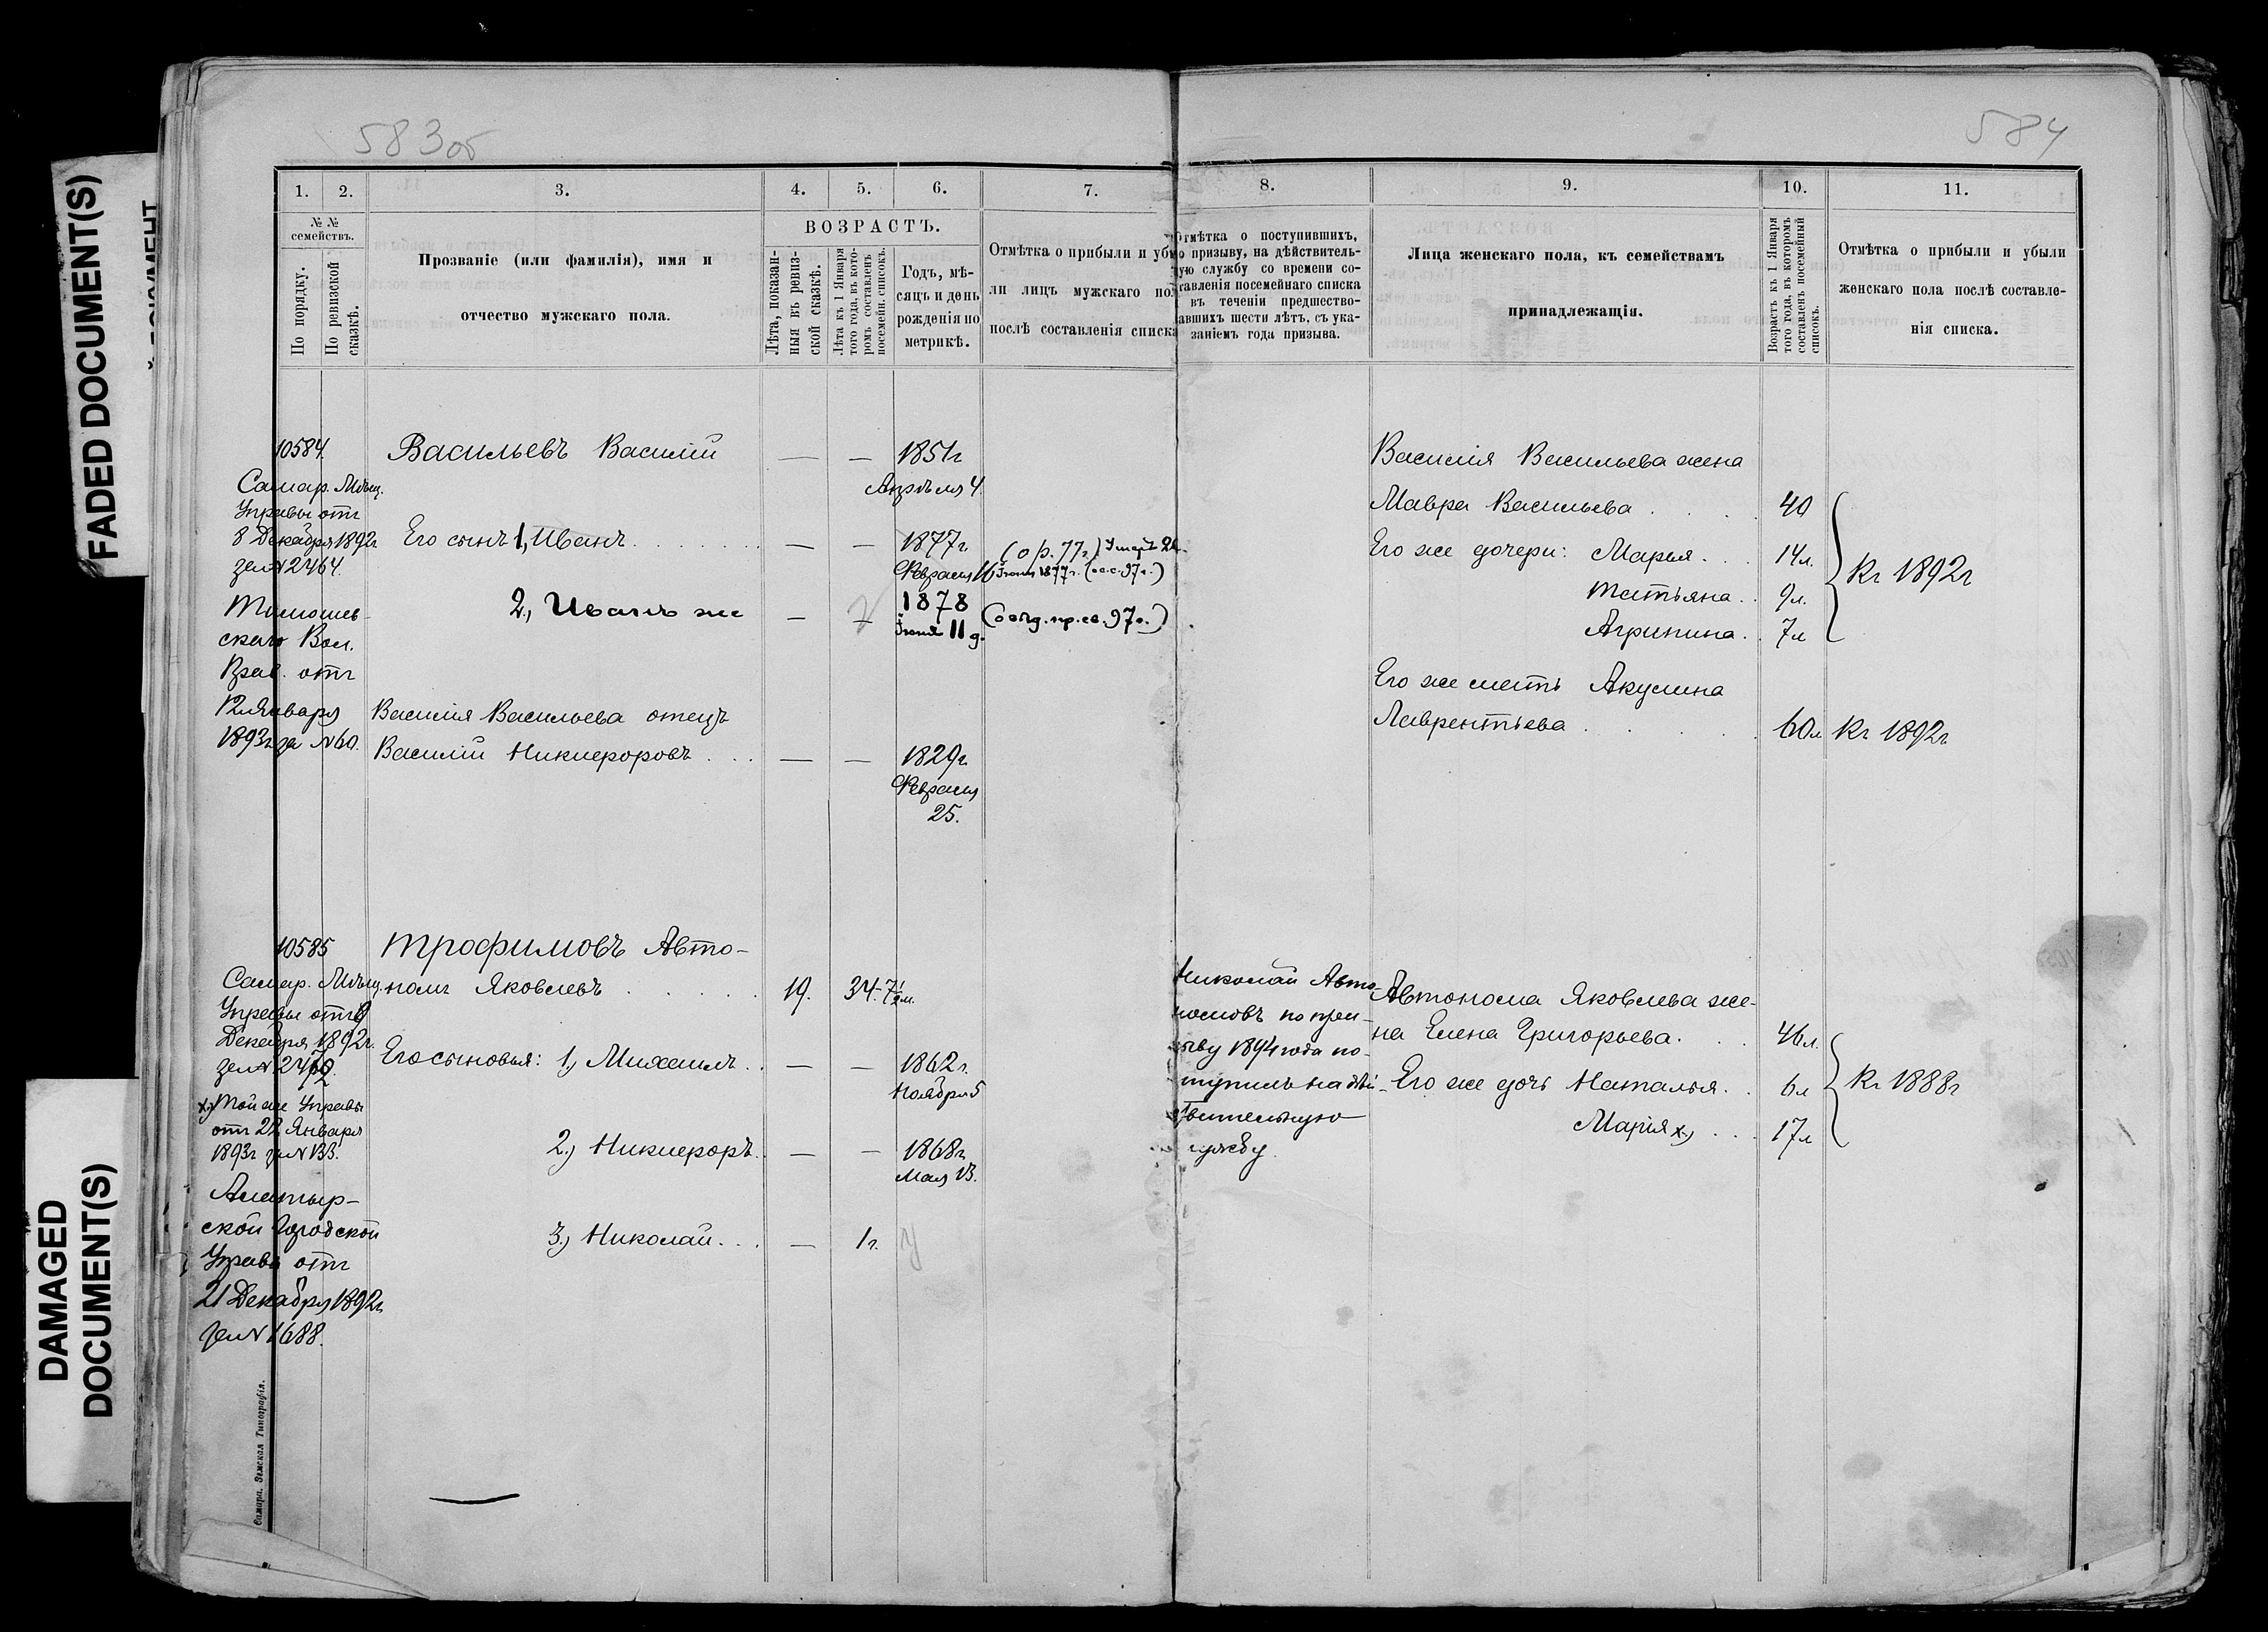 583 об
584
FADED DOCUMENT(S)
DAMAGED
DOCUMENT(S)
1. 2. 3. 4. 5. 6. 7. 8. 9. 10. 11.
№ №
семействъ.
По порядку.
По ревизской
сказкѣ.
Прозваніе (или фамилія), имя и
отчество мужскаго пола.
ВОЗРАСТЪ.
Лѣта, показан-
ныя въ ревиз-
ской сказкѣ.
Лѣта къ 1 Января
того года, въ кото-
ромъ составленъ
посемейн. списокъ.
Годъ, мѣ-
сяцъ и день
рожденія по
метрикѣ.
Отмѣтка о прибыли и убы
ли лицъ мужскаго пол
послѣ составленія списка
Отмѣтка о поступившихъ,
о призыву, на дѣйствитель-
ую службу со времени со-
тавленія посемейнаго списка
въ теченіи предшество-
авшихъ шести лѣтъ, съ ука-
заніемъ года призыва.
Лица женскаго пола, къ семействамъ
принадлежащія.
Возрастъ къ 1 Января
того года, въ которомъ
составленъ посемейный
списокъ.
Отмѣтка о прибыли и убыли
женскаго пола послѣ составле-
нія списка.
10584.
Самар. Мѣщ.
Управы отъ
8 Декабря 1892г
за № 2464.
скаго Вол.
Прав. отъ
12 Января
1893г за № 60.
Васильевъ Василій — — 1851г
Апрѣля 4.
Его сынъ 1, Иванъ — — 1877г
Февраля 16
2, Иванъ же — — 1878
Іюня 11 д.
Василія Васильева отецъ
Василій Никифоровъ — — 1829г
Февраля
25.
Василія Васильева жена
Мавра Васильева 40
Его же дочери: Марья 14л.
Татьяна 9л.
Агрипина 7л
Къ 1892г
Его же мать Акулина
Лаврентьева 60л Къ 1892г
10585
Самар. Мѣщ.
Управы отъ 9
Декабря 1892г.
х) Той же Управы
отъ 22 Января
1893г за № 133.
Алатыр-
ской Городской
Управы отъ
21 Декабря 1892г
за № 1688.
Трофимовъ Авто-
номъ Яковлевъ 19. 34.
Его сыновья: 1, Михаилъ — — 1862г.
Ноября 5
2, Никифоръ — — 1868г
Мая 13.
3, Николай — 1г.
Николай Авто-
номовъ по при-
зыву 1894 года по-
ступилъ на дѣй-
ствительную
службу.
Автонома Яковлева же-
на Елена Григорьева. 46л.
Его же дочь Наталья. 6л
Марія х) 17л
Къ 1888г
Самара. Земская Типографія.